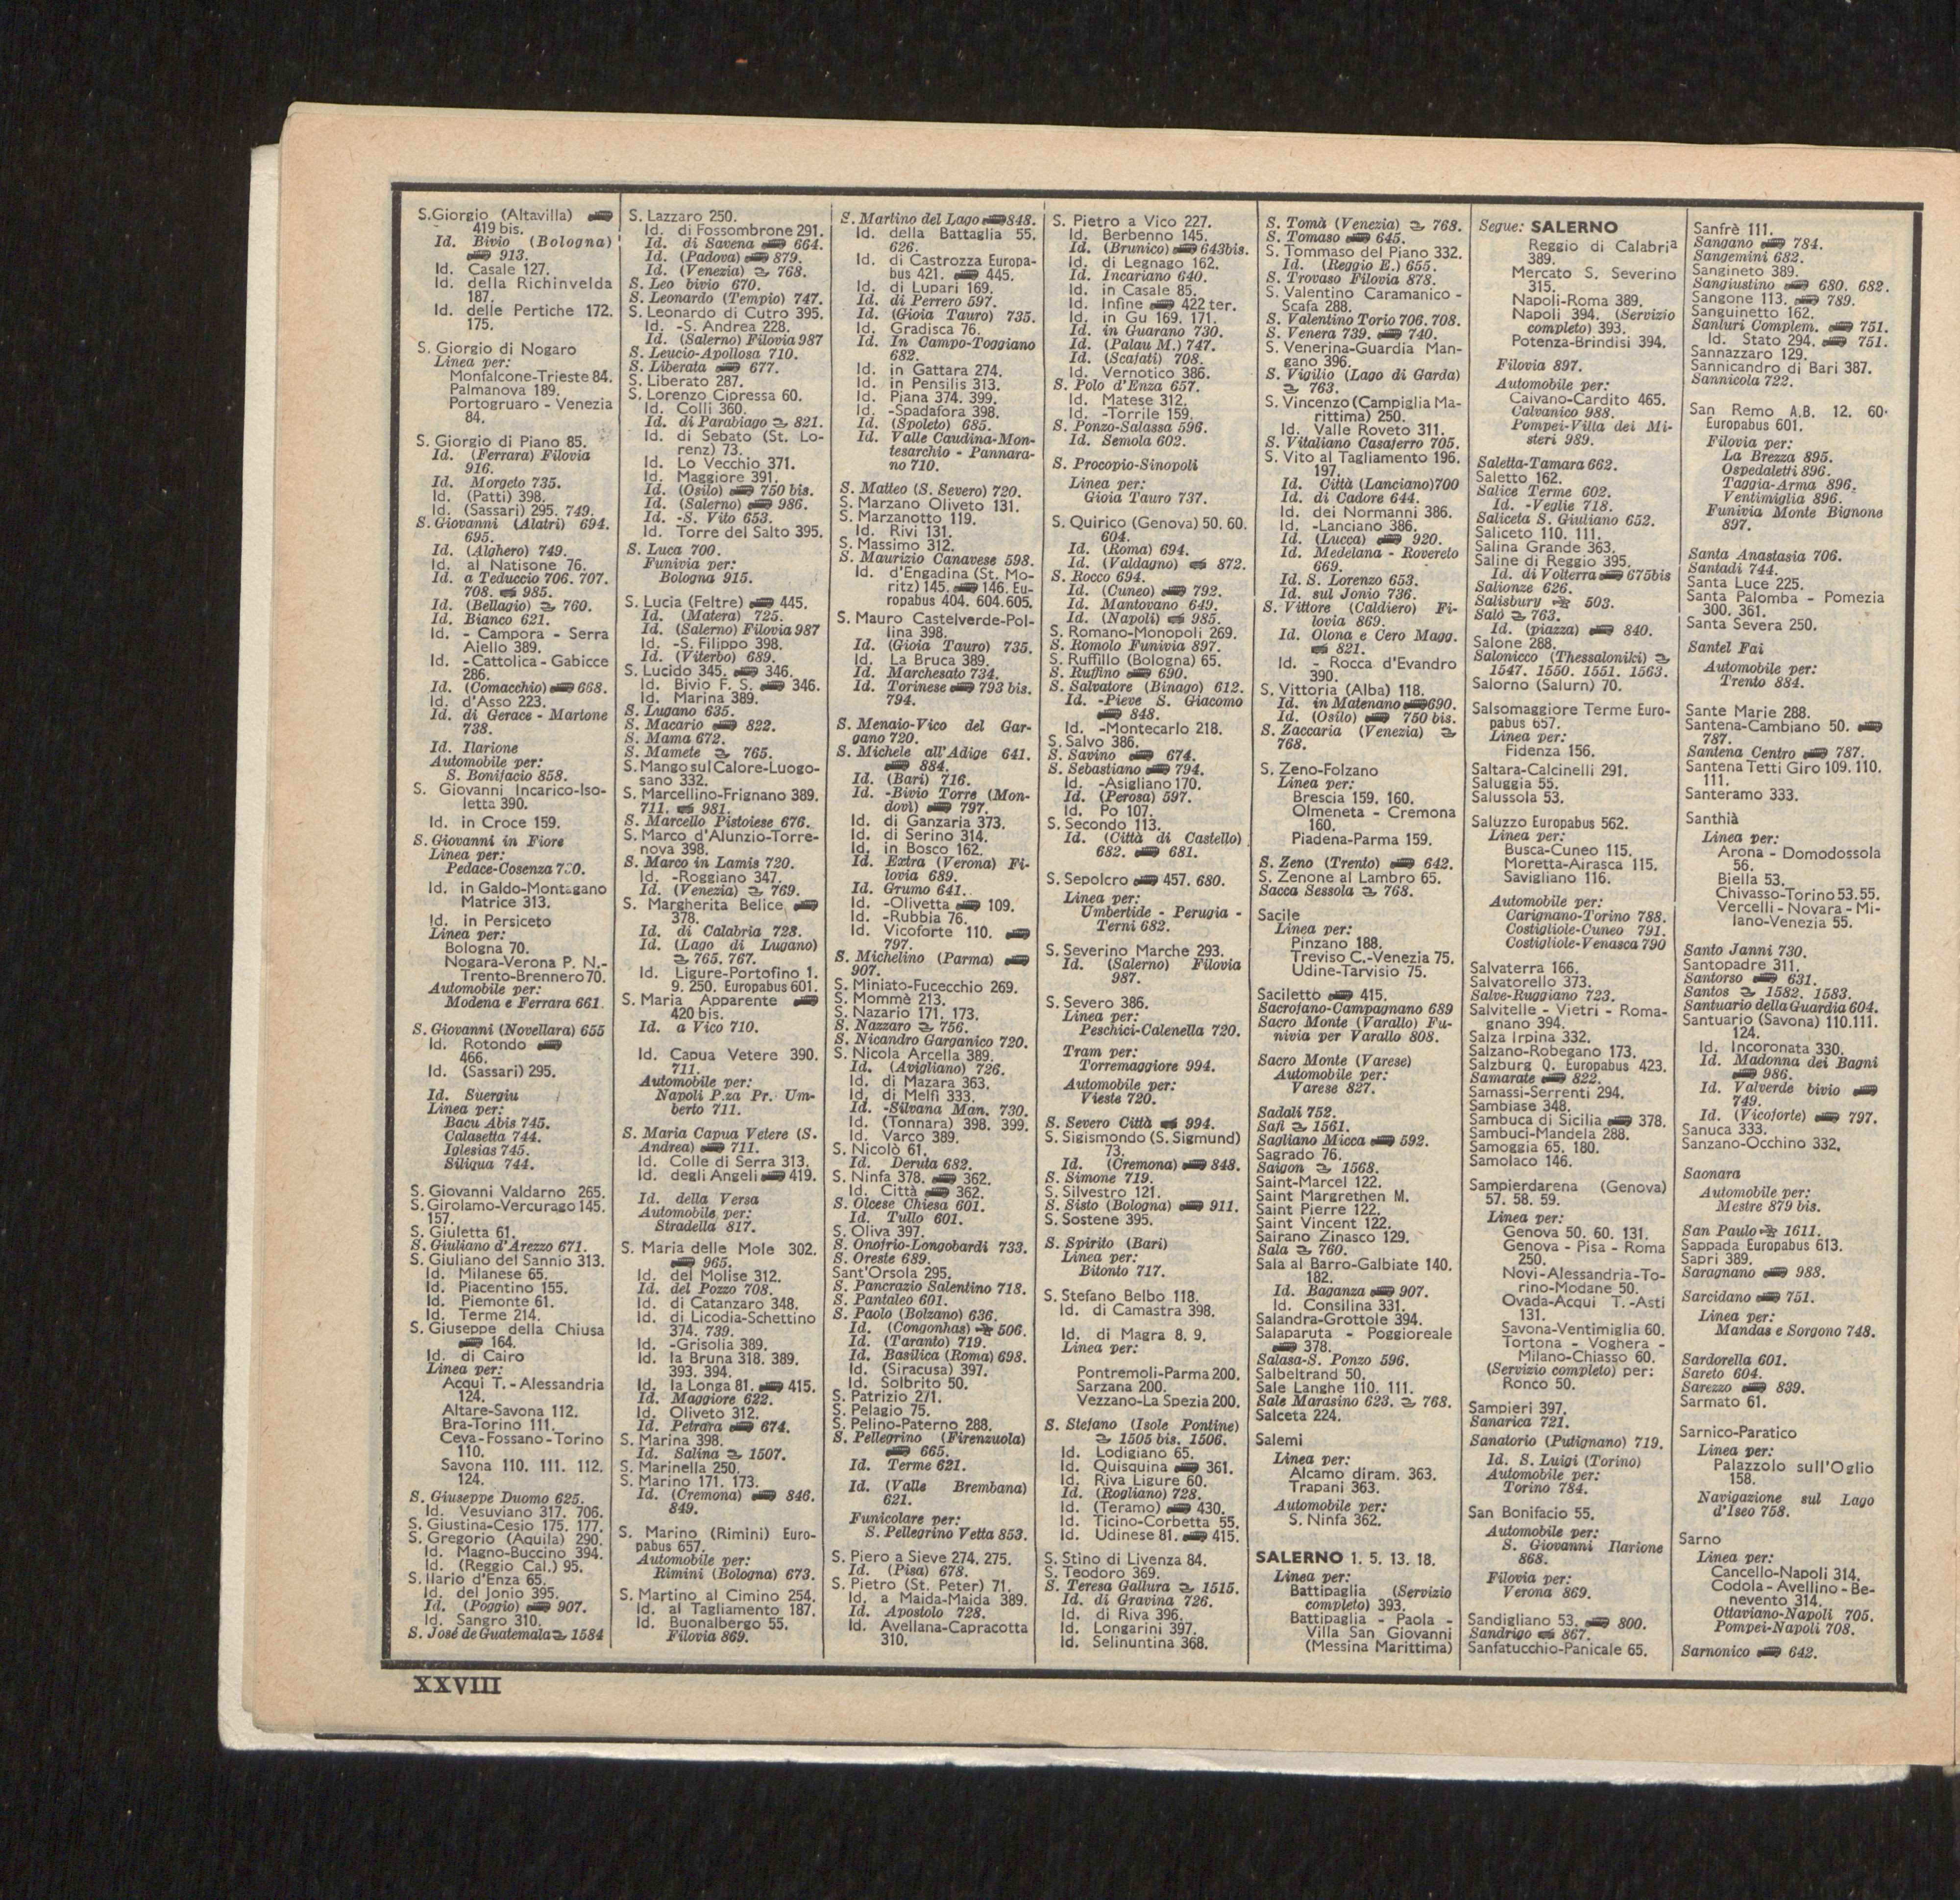 S.Giorgio (Altavilla)
419 bis.
Id. Bivio (Bologna)
913.
Id. Casale 127.
Id. della Richinvelda
187.
Id. delle Pertiche 172.
175.
S. Giorgio di Nogaro
Linea per:
Monfalcone-Trieste 84.
Palmanova 189.
Portogruaro - Venezia
84.
S. Giorgio di Piano 85.
Id. (Ferrara) Filovia
916.
Id. Morgeto 735.
Id. (Patti) 398.
Id. (Sassari) 295. 749.
S. Giovanni (Alatri) 694.
695.
Id. (Alghero) 749.
Id. al Natisone 76.
Id. a Teduccio 706. 707.
708. 985.
Id. (Bellagio) 760.
Id. Bianco 621.
Id. - Campora - Serra
Aiello 389.
Id. -Cattolica - Gabicce
286.
Id. (Comacchio) 668.
Id. d'Asso 223.
Id. di Gerace - Martone
738.
Id. Ilarione
Automobile per:
S. Bonifacio 858.
S. Giovanni Incarico-Iso-
letta 390.
Id. in Croce 159.
S. Giovanni in Fiore
Linea per:
Pedace-Cosenza
Id. in Galdo-Montagano
Matrice 313.
Id. in Persiceto
Linea per:
Bologna 70.
Nogara-Verona P. N.-
Trento-Brennero 70.
Automobile per:
Modena e Ferrara 661.
S. Giovanni (Novellara) 655
Id. Rotondo
466.
Id. (Sassari) 295.
Id. Suergiu
Linea per:
Bacu Abis 745.
Calasetta 744.
Iglesias 745.
Siliqua 744.
S. Giovanni Valdarno 265.
S. Girolamo-Vercurago 145.
157.
S. Giuletta 61.
S. Giuliano d'Arezzo 671.
S. Giuliano del Sannio 313.
Id. Milanese 65.
Id. Piacentino 155.
Id. Piemonte 61.
Id. Terme 214.
S. Giuseppe della Chiusa
164.
Id. di Cairo
Linea per:
Acqui T. - Alessandria
124.
Altare-Savona 112.
Bra-Torino 111.
Ceva-Fossano-Torino
110.
Savona 110. 111. 112.
124.
S. Giuseppe Duomo 625.
Id. Vesuviano 317. 706.
S. Giustina-Cesio 175. 177.
S. Gregorio (Aquila) 290.
Id. Magno-Buccino 394.
Id. (Reggio Cal.) 95.
S. Ilario d'Enza 65.
Id. del Jonio 395.
Id. (Poggio) 907.
Id. Sangro 310.
S. José de Guatemala 1584
S. Lazzaro 250.
Id. di Fossombrone 291.
Id. di Savena 664.
Id. (Padova) 879.
Id. (Venezia) 768.
S. Leo bivio 670.
S. Leonardo (Tempio) 747.
S. Leonardo di Cutro 395.
Id. -S. Andrea 228.
Id. (Salerno) Filovia 987
S. Leucio-Apollosa 710.
S. Liberata 677.
S. Liberato 287.
S. Lorenzo Cipressa 60.
Id. Colli 360.
Id. di Parabiago 821.
Id. di Sebato (St. Lo-
renz) 73.
Id. Lo Vecchio 371.
Id. Maggiore 391.
Id. (Osilo) 750 bis.
Id. (Salerno) 986.
Id. -S. Vito 653.
Id. Torre del Salto 395.
S. Luca 700.
Funivia per:
Bologna 915.
S. Lucia (Feltre) 445.
Id. (Matera) 725.
Id. (Salerno) Filovia 987
Id. -S. Filippo 398.
Id. (Viterbo) 689.
S. Lucido 345. 346.
Id. Bivio F. S. 346.
Id. Marina 389.
S. Lugano 635.
S. Macario 822.
S. Mama 672.
S. Mamete 765.
S. Mango sul Calore-Luogo-
sano 332.
S. Marcellino-Frignano 389.
711. 981.
S. Marcello Pistoiese 676.
S. Marco d'Alunzio-Torre-
nova 398.
S. Marco in Lamis 720.
Id. -Roggiano 347.
Id. (Venezia) 769.
S. Margherita Belice
378.
Id. di Calabria 728.
Id. (Lago di Lugano)
765. 767.
Id. Ligure-Portofino 1.
9. 250. Europabus 601.
S. Maria Apparente
420 bis.
Id. a Vico 710.
Id. Capua Vetere 390.
711.
Automobile per:
Napoli P.za Pr. Um-
berto 711.
S. Maria Capua Vetere (S.
Andrea) 711.
Id. Colle di Serra 313.
Id. degli Angeli 419.
Id. della Versa
Automobile per:
Stradella 817.
S. Maria delle Mole 302.
965.
Id. del Molise 312.
Id. del Pozzo 708.
Id. di Catanzaro 348.
Id. di Licodia-Schettino
374. 739.
Id. -Grisolia 389.
Id. la Bruna 318. 389.
393. 394.
Id. la Longa 81. 415.
Id. Maggiore 622.
Id. Oliveto 312.
Id. Petrara 674.
S. Marina 398.
Id. Salina 1507.
S. Marinella 250.
S. Marino 171. 173.
Id. (Cremona) 846.
849.
S. Marino (Rimini) Euro-
pabus 657.
Automobile per:
Rimini (Bologna) 673.
S. Martino al Cimino 254.
Id. al Tagliamento 187.
Id. Buonalbergo 55.
Filovia 869.
S. Martino del Lago 848.
Id. della Battaglia 55.
626.
Id. di Castrozza Europa-
bus 421. 445.
Id. di Lupari 169.
Id. di Perrero 597.
Id. (Gioia Tauro) 735.
Id. Gradisca 76.
Id. In Campo-Toggiano
682.
Id. in Gattara 274.
Id. in Pensilis 313.
Id. Piana 374. 399.
Id. -Spadafora 398.
Id. (Spoleto) 685.
Id. Valle Caudina-Mon-
tesarchio - Pannara-
no 710.
S. Matteo (S. Severo) 720.
S. Marzano Oliveto 131.
S. Marzanotto 119.
Id. Rivi 131.
S. Massimo 312.
S. Maurizio Canavese 598.
Id. d'Engadina (St. Mo-
ritz) 145. 146. Eu-
ropabus 404. 604.605.
S. Mauro Castelverde-Pol-
lina 398.
Id. (Gioia Tauro) 735.
Id. La Bruca 389.
Id. Marchesato 734.
Id. Torinese 793 bis.
794.
S. Menaio-Vico del Gar-
gano 720.
S. Michele all'Adige 641.
884.
Id. (Bari) 716.
Id. -Bivio Torre (Mon-
dovì) 797.
Id. di Ganzaria 373.
Id. di Serino 314.
Id. in Bosco 162.
Id. Extra (Verona) Fi-
lovia 689.
Id. Grumo 641.
Id. -Olivetta 109.
Id. -Rubbia 76.
Id. Vicoforte 110.
797.
S. Michelino (Parma)
907.
S. Miniato-Fucecchio 269.
S. Mommè 213.
S. Nazario 171. 173.
S. Nazzaro 756.
S. Nicandro Garganico 720.
S. Nicola Arcella 389.
Id. (Avigliano) 726.
Id. di Mazara 363.
Id. di Melfi 333.
Id. -Silvana Man. 730.
Id. (Tonnara) 398. 399.
Id. Varco 389.
S. Nicolò 61.
Id. Deruta 682.
S. Ninfa 378. 362.
Id. Città 362.
S. Olcese Chiesa 601.
Id. Tullo 601.
S. Oliva 397.
S. Onofrio-Longobardi 733.
S. Oreste 689.
Sant'Orsola 295.
S. Pancrazio Salentino 718.
S. Pantaleo 601.
S. Paolo (Bolzano) 636.
Id. (Congonhas) 506.
Id. (Taranto) 719.
Id. Basilica (Roma) 698.
Id. (Siracusa) 397.
Id. Solbrito 50.
S. Patrizio 271.
S. Pelagio 75.
S. Pelino-Paterno 288.
S. Pellegrino (Firenzuola)
665.
Id. Terme 621.
Id. (Valle Brembana)
621.
Funicolare per:
S. Pellegrino Vetta 853.
S. Piero a Sieve 274. 275.
Id. (Pisa) 678.
S. Pietro (St. Peter) 71.
Id. a Maida-Maida 389.
Id. Apostolo 728.
Id. Avellana-Capracotta
310.
S. Pietro a Vico 227.
Id. Berbenno 145.
Id. (Brunico) 643bis.
Id. di Legnago 162.
Id. Incariano 640.
Id. in Casale 85.
Id. Infine 422 ter.
Id. in Gu 169. 171.
Id. in Guarano 730.
Id. (Palau M.) 747.
Id. (Scafati) 708.
Id. Vernotico 386.
S. Polo d'Enza 657.
Id. Matese 312.
Id. -Torrile 159.
S. Ponzo-Salassa 596.
Id. Semola 602.
S. Procopio-Sinopoli
Linea per:
Gioia Tauro 737.
S. Quirico (Genova) 50. 60.
604.
Id. (Roma) 694.
Id. (Valdagno) 872.
S. Rocco 694.
Id. (Cuneo) 792.
Id. Mantovano 649.
Id. (Napoli) 985.
S. Romano-Monopoli 269.
S. Romolo Funivia 897.
S. Ruffillo (Bologna) 65.
S. Ruffino 690.
S. Salvatore (Binago) 612.
Id. -Pieve S. Giacomo
848.
Id. -Montecarlo 218.
S. Salvo 386.
S. Savino 674.
S. Sebastiano 794.
Id. -Asigliano 170.
Id. (Perosa) 597.
Id. Po 107.
S. Secondo 113.
Id. (Città di Castello)
682. 681.
S. Sepolcro 457. 680.
Linea per:
Umbertide - Perugia -
Terni 682.
S. Severino Marche 293.
Id. (Salerno) Filovia
987.
S. Severo 386.
Linea per:
Peschici-Calenella 720.
Tram per:
Torremaggiore 994.
Automobile per:
Vieste 720.
S. Severo Città 994.
S. Sigismondo (S. Sigmund)
73.
Id. (Cremona) 848.
S. Simone 719.
S. Silvestro 121.
S. Sisto (Bologna) 911.
S. Sostene 395.
S. Spirito (Bari)
Linea per:
Bitonto 717.
S. Stefano Belbo 118.
Id. di Camastra 398.
Id. di Magra 8. 9.
Linea per:
Pontremoli-Parma 200.
Sarzana 200.
Vezzano-La Spezia 200.
S. Stefano (Isole Pontine)
1505 bis. 1506.
Id. Lodigiano 65.
Id. Quisquina 361.
Id. Riva Ligure 60.
Id. (Rogliano) 728.
Id. (Teramo) 430.
Id. Ticino-Corbetta 55.
Id. Udinese 81. 415.
S. Stino di Livenza 84.
S. Teodoro 369.
S. Teresa Gallura 1515.
Id. di Gravina 726.
Id. di Riva 396.
Id. Longarini 397.
Id. Selinuntina 368.
S. Tomà (Venezia) 768.
S. Tomaso 645.
S. Tommaso del Piano 332.
Id. (Reggio E.) 655.
S. Trovaso Filovia 878.
S. Valentino Caramanico -
Scafa 288.
S. Valentino Torio 706. 708.
S. Venera 739. 740.
S. Venerina-Guardia Man-
gano 396.
S. Vigilio (Lago di Garda)
763.
S. Vincenzo (Campiglia Ma-
rittima) 250.
Id. Valle Roveto 311.
S. Vitaliano Casaferro 705.
S. Vito al Tagliamento 196.
197.
Id. Città (Lanciano)700
Id. di Cadore 644.
Id. dei Normanni 386.
Id. -Lanciano 386.
Id. (Lucca) 920.
Id. Medelana - Rovereto
669.
Id. S. Lorenzo 653.
Id. sul Jonio 736.
S. Vittore (Caldiero) Fi-
lovia 869.
Id. Olona e Cero Magg.
821.
Id. - Rocca d'Evandro
390.
S. Vittoria (Alba) 118.
Id. in Matenano 690.
Id. (Osilo) 750 bis.
S. Zaccaria (Venezia)
768.
S. Zeno-Folzano
Linea per:
Brescia 159. 160.
Olmeneta - Cremona
160.
Piadena-Parma 159.
S. Zeno (Trento) 642.
S. Zenone al Lambro 65.
Sacca Sessola 768.
Sacile
Linea per:
Pinzano 188.
Treviso C.-Venezia 75.
Udine-Tarvisio 75.
Saciletto 415.
Sacrofano-Campagnano 689
Sacro Monte (Varallo) Fu-
nivia per Varallo 808.
Sacro Monte (Varese)
Automobile per:
Varese 827.
Sadali 752.
Safi 1561.
Sagliano Micca 592.
Sagrado 76.
Saigon 1568.
Saint-Marcel 122.
Saint Margrethen M.
Saint Pierre 122.
Saint Vincent 122.
Sairano Zinasco 129.
Sala 760.
Sala al Barro-Galbiate 140.
182.
Id. Baganza 907.
Id. Consilina 331.
Salandra-Grottole 394.
Salaparuta - Poggioreale
378.
Salasa-S. Ponzo 596.
Salbeltrand 50.
Sale Langhe 110. 111.
Sale Marasino 623. 768.
Salceta 224.
Salemi
Linea per:
Alcamo diram. 363.
Trapani 363.
Automobile per:
S. Ninfa 362.
SALERNO 1. 5. 13. 18.
Linea per:
Battipaglia (Servizio
completo) 393.
Battipaglia - Paola -
Villa San Giovanni
(Messina Marittima)
Segue: SALERNO
Reggio di Calabria
389.
Mercato S. Severino
315.
Napoli-Roma 389.
Napoli 394. (Servizio
completo) 393.
Potenza-Brindisi 394.
Filovia 897.
Automobile per:
Caivano-Cardito 465.
Calvanico 988.
Pompei-Villa dei Mi-
steri 989.
Saletta-Tamara 662.
Saletto 162.
Salice Terme 602.
Id. -Veglie 718.
Saliceta S. Giuliano 652.
Saliceto 110. 111.
Salina Grande 363.
Saline di Reggio 395.
Id. di Volterra 675bis
Salionze 626.
Salisbury 503.
Salò 763.
Id. (piazza) 840.
Salone 288.
Salonicco (Thessaloniki)
1547. 1550. 1551. 1563.
Salorno (Salurn) 70.
Salsomaggiore Terme Euro-
pabus 657.
Linea per:
Fidenza 156.
Saltara-Calcinelli 291.
Saluggia 55.
Salussola 53.
Saluzzo Europabus 562.
Linea per:
Busca-Cuneo 115.
Moretta-Airasca 115.
Savigliano 116.
Automobile per:
Carignano-Torino 788.
Costigliole-Cuneo 791.
Costigliole-Venasca 790
Salvaterra 166.
Salvatorello 373.
Salve-Ruggiano 723.
Salvitelle - Vietri - Roma-
gnano 394.
Salza Irpina 332.
Salzano-Robegano 173.
Salzburg Q. Europabus 423.
Samarate 822.
Samassi-Serrenti 294.
Sambiase 348.
Sambuca di Sicilia 378.
Sambuci-Mandela 288.
Samoggia 65. 180.
Samolaco 146.
Sampierdarena (Genova)
57. 58. 59.
Linea per:
Genova 50. 60. 131.
Genova - Pisa - Roma
250.
Novi-Alessandria-To-
rino-Modane 50.
Ovada-Acqui T.-Asti
131.
Savona-Ventimiglia 60.
Tortona - Voghera -
Milano-Chiasso 60.
(Servizio completo) per:
Ronco 50.
Sampieri 397.
Sanarica 721.
Sanatorio (Putignano) 719.
Id. S. Luigi (Torino)
Automobile per:
Torino 784.
San Bonifacio 55.
Automobile per:
S. Giovanni Ilarione
868.
Filovia per:
Verona 869.
Sandigliano 53. 800.
Sandrigo 867.
Sanfatucchio-Panicale 65.
Sanfrè 111.
Sangano 784.
Sangemini 682.
Sangineto 389.
Sangiustino 680. 682.
Sangone 113. 789.
Sanguinetto 162.
Sanluri Complem. 751.
Id. Stato 294. 751.
Sannazzaro 129.
Sannicandro di Bari 387.
Sannicola 722.
San Remo A.B. 12. 60.
Europabus 601.
Filovia per:
La Brezza 895.
Ospedaletti 896.
Taggia-Arma 896.
Ventimiglia 896.
Funivia Monte Bignone
897.
Santa Anastasia 706.
Santadi 744.
Santa Luce 225.
Santa Palomba - Pomezia
300. 361.
Santa Severa 250.
Santel Fai
Automobile per:
Trento 884.
Sante Marie 288.
Santena-Cambiano 50.
787.
Santena Centro 787.
Santena Tetti Giro 109. 110.
111.
Santeramo 333.
Santhià
Linea per:
Arona - Domodossola
56.
Biella 53.
Chivasso-Torino 53.55.
Vercelli - Novara - Mi-
lano-Venezia 55.
Santo Janni 730.
Santopadre 311.
Santorso 631.
Santos 1582. 1583.
Santuario della Guardia 604.
Santuario (Savona) 110.111.
124.
Id. Incoronata 330.
Id. Madonna dei Bagni
986.
Id. Valverde bivio
749.
Id. (Vicoforte) 797.
Sanuca 333.
Sanzano-Occhino 332.
Saonara
Automobile per:
Mestre 879 bis.
San Paulo 1611.
Sappada Europabus 613.
Sapri 389.
Saragnano 988.
Sarcidano 751.
Linea per:
Mandas e Sorgono 748.
Sardorella 601.
Sareto 604.
Sarezzo 839.
Sarmato 61.
Sarnico-Paratico
Linea per:
Palazzolo sull'Oglio
158.
Navigazione sul Lago
d'Iseo 758.
Sarno
Linea per:
Cancello-Napoli 314.
Codola - Avellino - Be-
nevento 314.
Ottaviano-Napoli 705.
Pompei-Napoli 708.
Sarnonico 642.
XXVIII